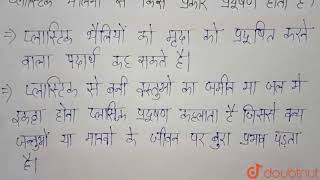 प्लास्टिक थैलियों से किस प्रकार प्रदूषण होता है?
⇒ प्लास्टिक थैलियों को मृदा को प्रदूषित करने
वाला पदार्थ कह सकते है।
⇒ प्लास्टिक से बनी वस्तुओं का जमीन या जल में
इकट्ठा होना प्लास्टिक प्रदूषण कहलाता है जिससे वन्य
जन्तुओं या मानवों के जीवन पर बुरा प्रभाव पड़ता
है।
doubtnut